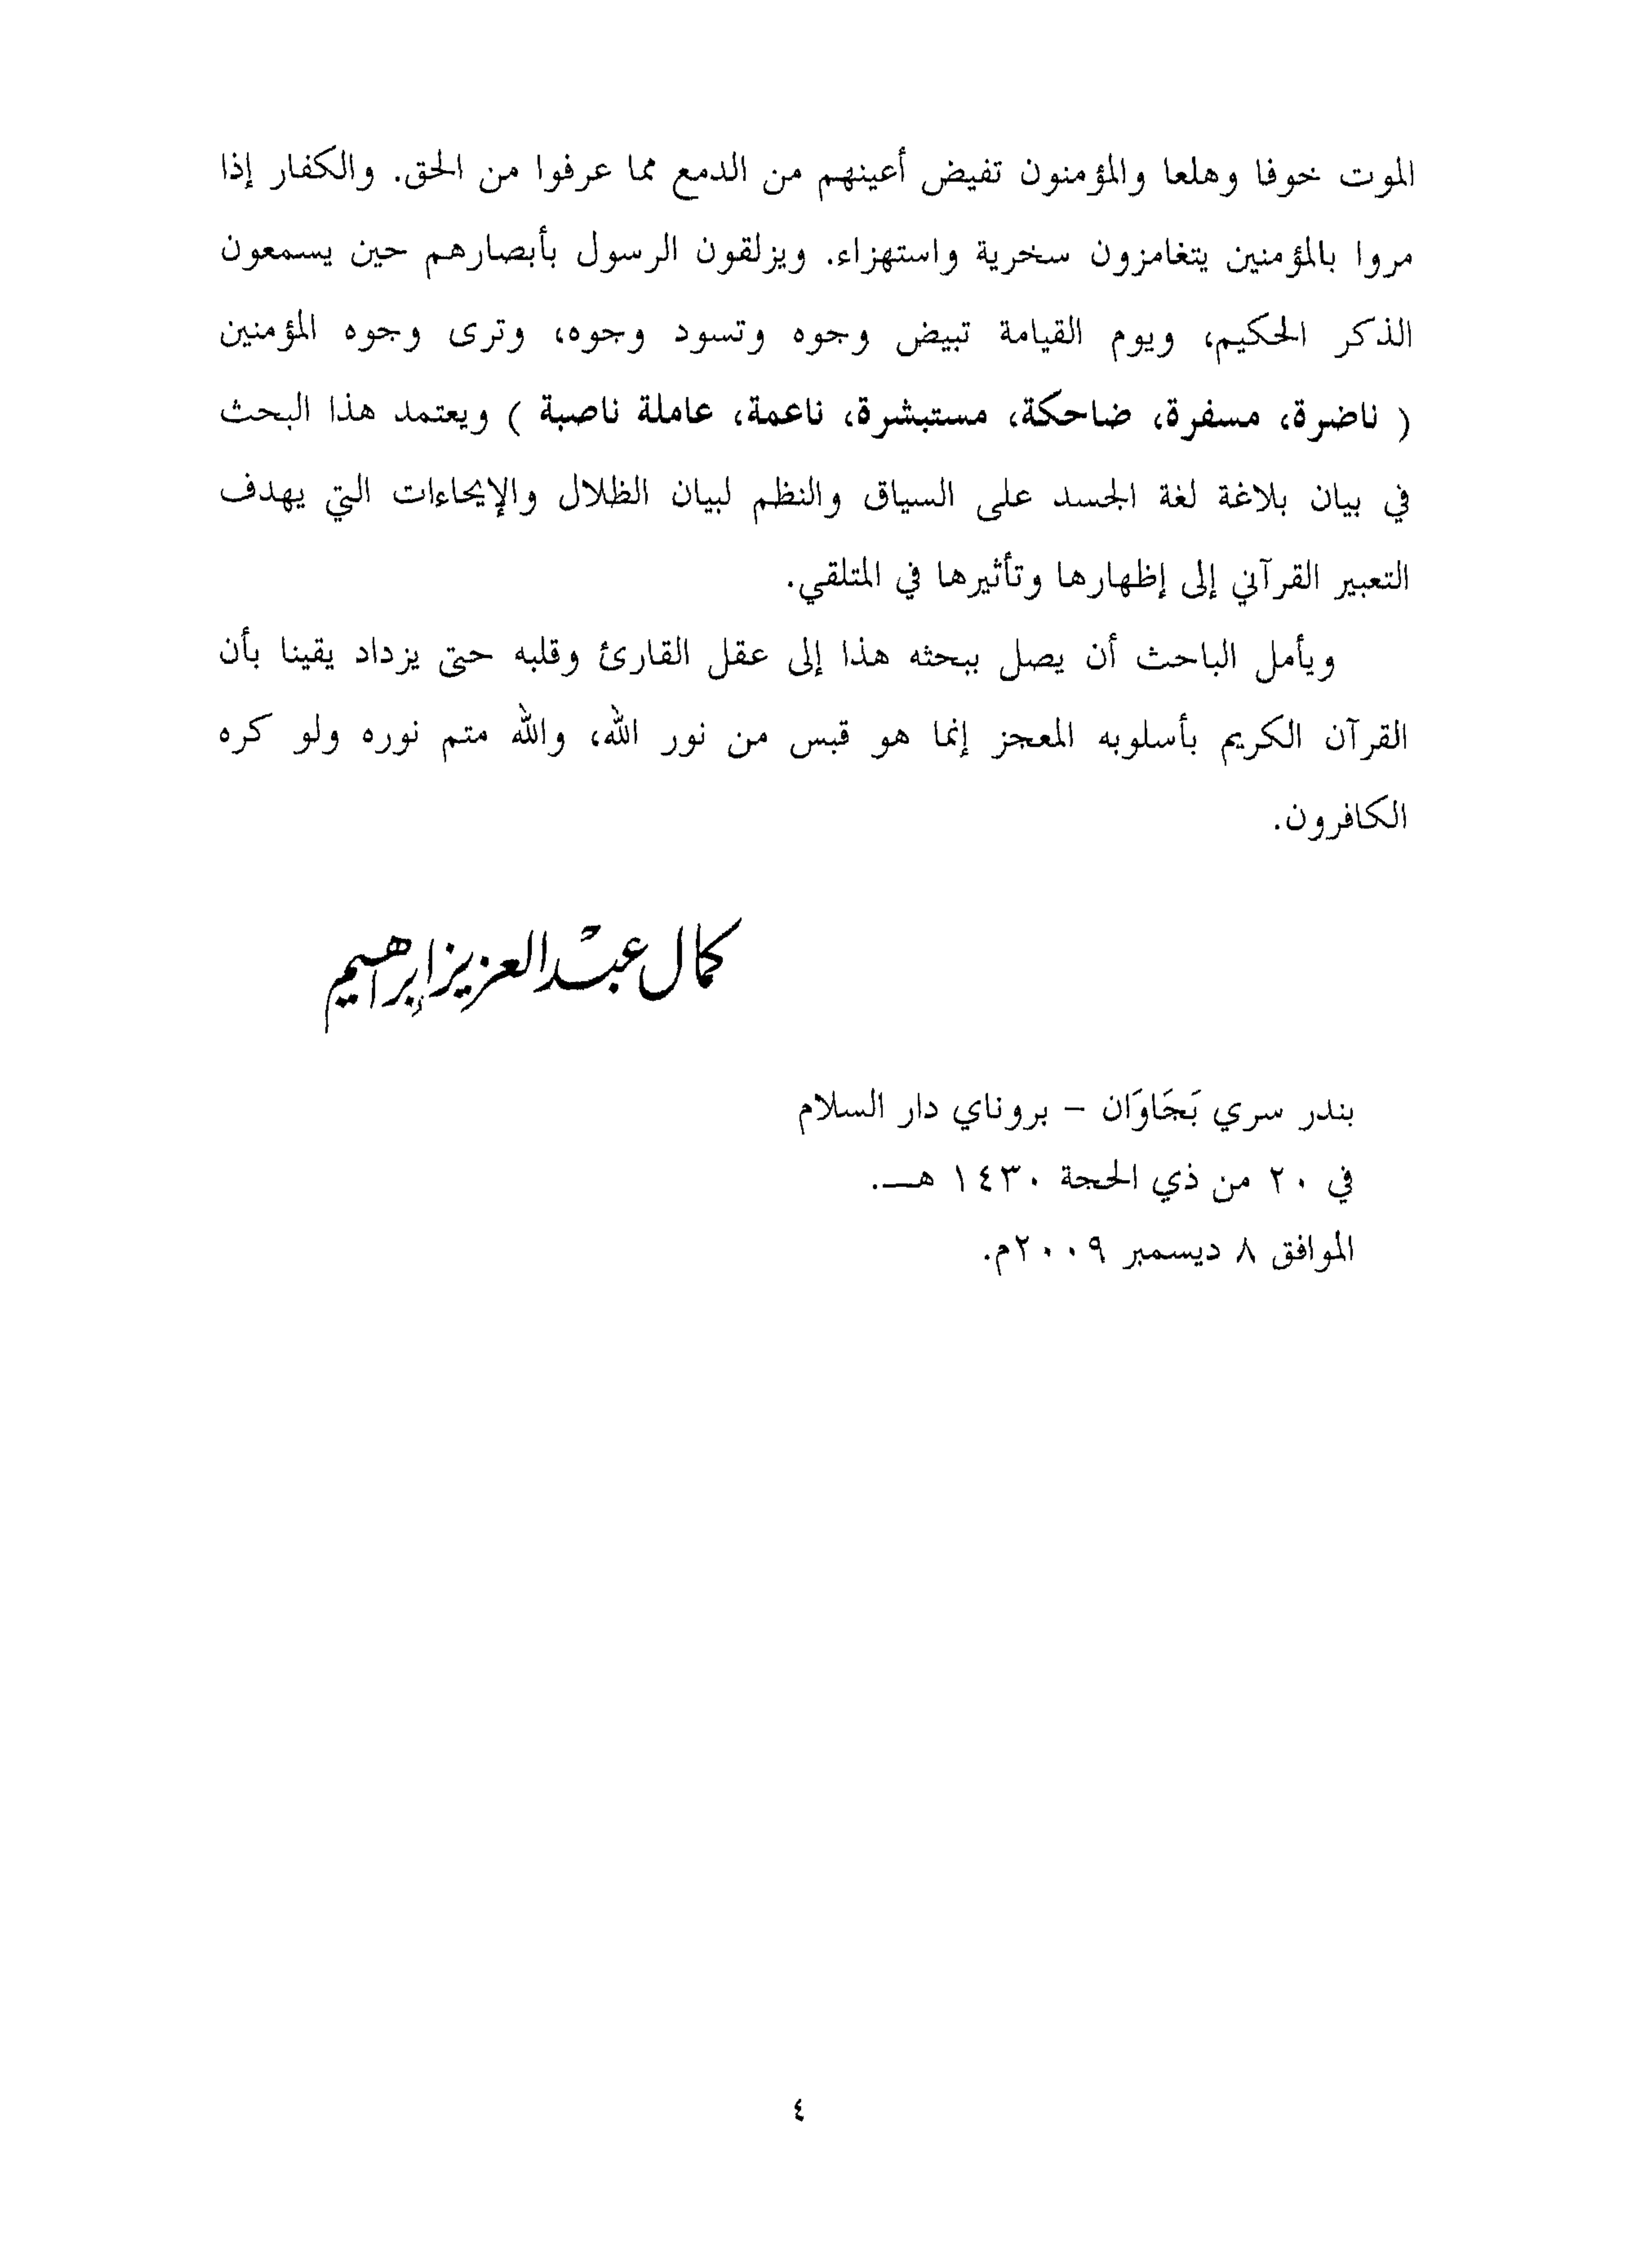 الموت خوفا وهلعا والمؤمنون تفيض أعينهم من الدمع مما عرفوا من الحق. والكفار إذا
مروا بالمؤمنين يتغامزون سخرية واستهزاء. ويزلقون الرسول بأبصارهم حين يسمعون
الذكر الحكيم، ويوم القيامة تبيض وجوه وتسود وجوه، وترى وجوه المؤمنين
( ناضرة، مسفرة، ضاحكة، مستبشرة، ناعمة، عاملة ناصبة ) ويعتمد هذا البحث
في بيان بلاغة لغة الجسد على السياق والنظم لبيان الظلال والإيحاءات التي يهدف
التعبير القرآني إلى إظهارها وتأثيرها في المتلقي.
ويأمل الباحث أن يصل ببحثه هذا إلى عقل القارئ وقلبه حتى يزداد يقينا بأن
القرآن الكريم بأسلوبه المعجز إنما هو قبس من نور الله، والله متم نوره ولو كره
الكافرون.
كمال عبْد العزيز إبراهيم
بندر سري بَجَاوَان – بروناي دار السلام
في ٢٠ من ذي الحجة ١٤٣٠ هـــ.
الموافق ٨ ديسمبر ٢٠٠٩م.
٤